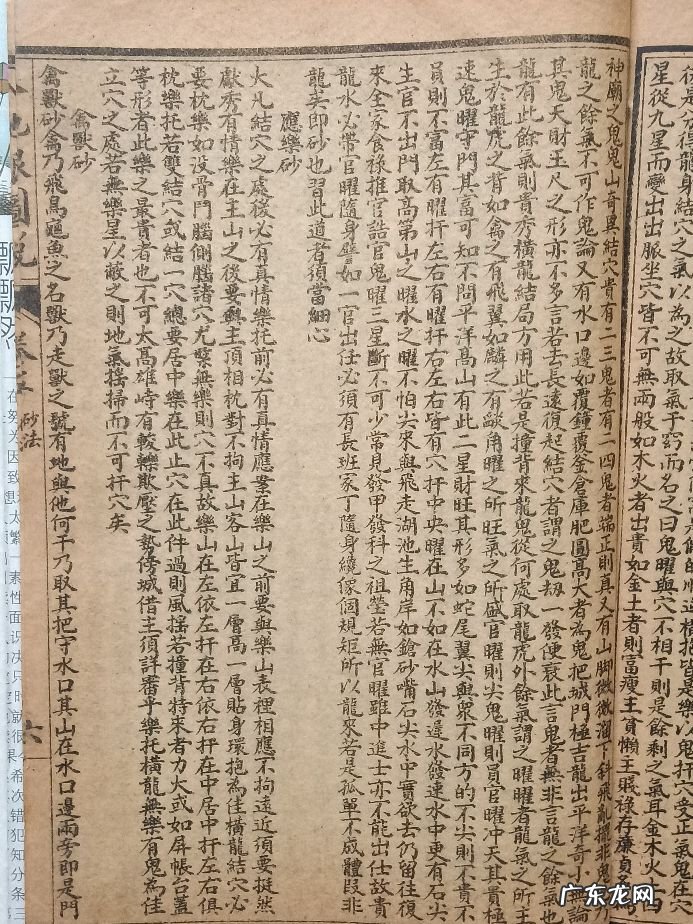 星從九星而變出出脈坐穴皆不可無兩般如木火者出貴如金土者則富瘦主貧懶主賤祿存廉貞
神廟之鬼鬼山奇異結穴貴有二三鬼者有一四鬼者端正則真又有山脚微微溜下斜飛亂擺非鬼
龍之餘氣不可作鬼論又有水口邊如覆鐘覆釜倉庫肥圓高大者為鬼把城門極吉龍出平洋奇小無論
其鬼天財玉尺之形亦不多言若去長遠復起結穴者謂之鬼劫一發便衰此言鬼者無非言龍之餘氣也
龍有此餘氣則貴秀橫龍結局方用此若是撞背來龍鬼從何處取龍虎外餘氣謂之曜曜者龍氣之所王
生於龍虎之背如禽之有飛翼如麟之有燄角曜之所旺氣之所盛官曜則尖鬼曜則員官曜冲天其貴極
速鬼曜守門其富可知不問平洋高山有此二星財旺其形多如蛇尾翼尖與眾不同方的不尖則不貴不
員則不富左有曜扦左右有曜扦右左右皆有穴扦中央曜在山不如在水山發遲水發速水中更有石尖
生官不出門取高第山之曜水之曜不怕尖來與飛走湖池生角岸如鎗砂嘴石尖水中實欲去仍留往復
來全家食祿推官詰官鬼曜三星斷不可少常見發甲發科之祖塋若無官曜雖中進士亦不能出仕故貴
龍水必帶官曜隨身譬如一官出任必須有長班家丁隨身纔像個規矩所以龍來若是孤單不成體段非
龍矣即砂也習此道者須當細心
應樂砂
大凡結穴之處後必有真情樂托前必有真情應案在樂山之前要與樂山表裡相應不拘遠近須要挺然
獻秀有情樂在主山之後要與主頂相枕對不拘主山客山皆宜一層高一層貼身環抱為佳橫龍結穴必
要枕樂如没骨鬥腦側腦諸穴尤緊無樂則穴不真故樂山在左依左扦在右依右扦在中居中扦左右俱
枕樂托若雙結穴或結一穴總要居中樂在此止穴在此件過則風搖若撞背特來者力大或如屏帳台蓋
等形者此樂之最貴者也不可太高雄峙有較轢欺壓之勢傍城借主須詳審乎樂托橫龍無樂有鬼為佳
立穴之處若無樂星以敵之則地氣搖掃而不可扦穴矣
禽獸砂
禽獸砂禽乃飛鳥龜魚之名獸乃走獸之號有地與他何干乃取其把守水口其山在水口邊兩旁即是門
砂法
六
广东龙网